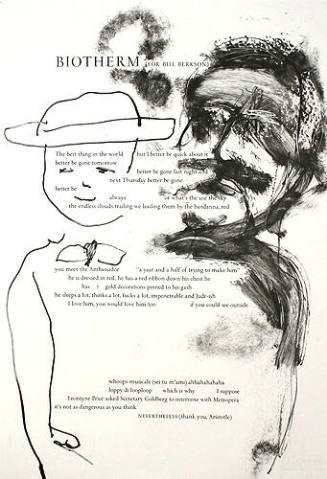 BIOTHERM (FOR BILL BERKSON)
The best thing in the world but I better be quick about it
better be gone tomorrow
better be gone last night and
next Thursday better be gone
better be
always or what's the use the sky
the endless clouds trailing we leading them by the bandanna, red
you meet the Ambassador "a year and a half of trying to make him"
he is dressed in red, he has a red ribbon down his chest he
has 7 gold decorations pinned to his gash
he sleeps a lot, thinks a lot, fucks a lot, impenetrable and Jude-ish
I love him, you would love him too if you could see outside
whoops-musicale (sei tu m'ami) ahhahahahaha
loppy di looploop which is why I suppose
Leontyne Price asked Secretary Goldberg to intervene with Metropera
it's not as dangerous as you think
NEVERTHELESS (thank you, Aristotle)